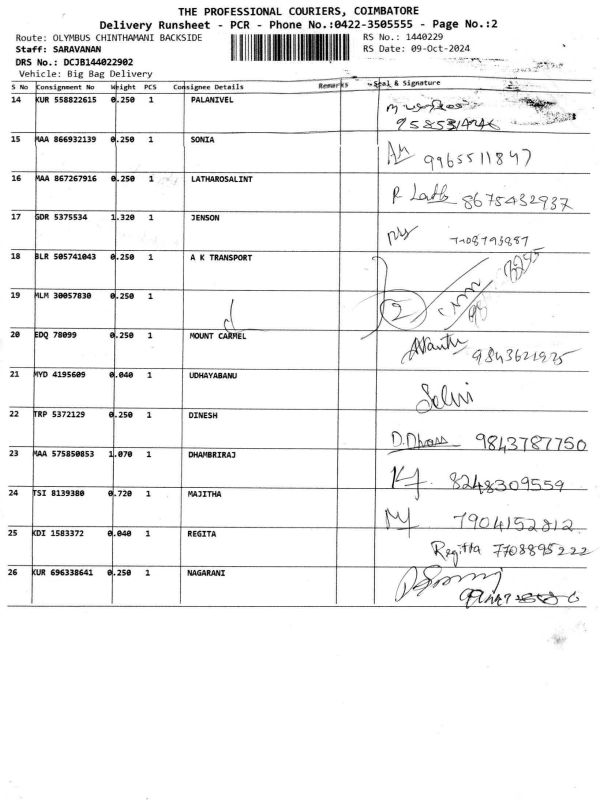 THE PROFESSIONAL COURIERS, COIMBATORE
Delivery Runsheet - PCR - Phone No.:0422-3505555 - Page No.:2
Route: OLYMBUS CHINTHAMANI BACKSIDE RS No.: 1440229
Staff: SARAVANAN RS Date: 09-Oct-2024
DRS No.: DCJB144022902
Vehicle: Big Bag Delivery
S No Consignment No Weight PCS Consignee Details Remarks Seal & Signature
14 KUR 558822615 0.250 1 PALANIVEL
15 MAA 866932139 0.250 1 SONIA 9965511847
16 MAA 867267916 0.250 1 LATHAROSALINT R Lath 8675432937
17 GDR 5375534 1.320 1 JENSON 7708793887
18 BLR 505741043 0.250 1 A K TRANSPORT
19 MLM 30057830 0.250 1 2
20 EDQ 78099 0.250 1 MOUNT CARMEL 9843621975
21 MYD 4195609 0.040 1 UDHAYABANU Selvi
22 TRP 5372129 0.250 1 DINESH D.Dhass 9843787750
23 MAA 575850853 1.070 1 DHAMBRIRAJ 8248309559
24 TSI 8139380 0.720 1 MAJITHA 7904152812
25 KDI 1583372 0.040 1 REGITA Regitta 7708895222
26 KUR 696338641 0.250 1 NAGARANI